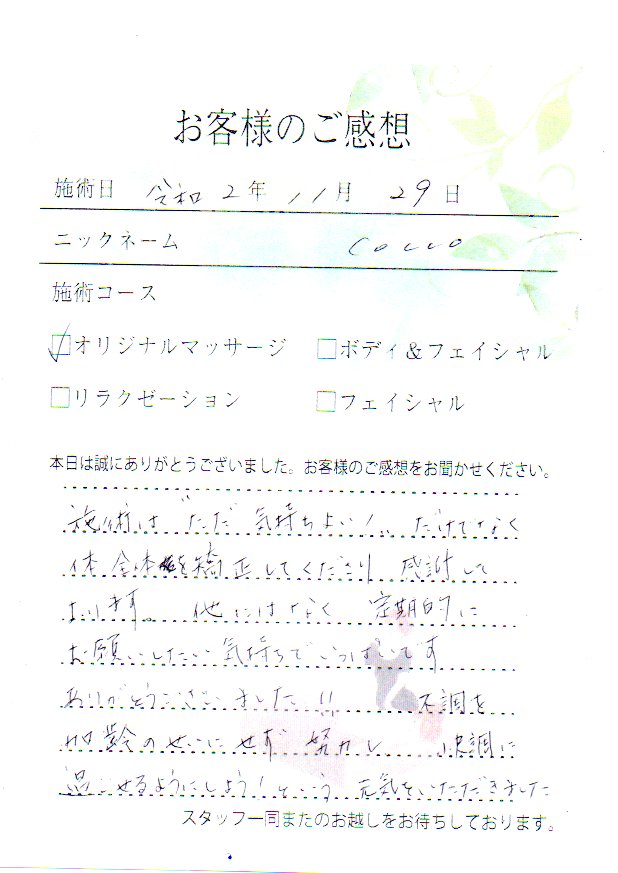 お客様のご感想
施術日 令和 2 年 11 月 29 日
ニックネーム cocco
施術コース
☑オリジナルマッサージ □ボディ&フェイシャル
□リラクゼーション □フェイシャル
本日は誠にありがとうございました。お客様のご感想をお聞かせください。
施術は "ただ 気持ちよい!" だけでなく
体全体を矯正してくださり 感謝して
おります。 他にはなく 定期的に
お願いしたい気持ちでいっぱいです
ありがとうございました!! 不調を
加齢のせいにせず 努力し 快調に
過ごせるようにしよう!という 元気をいただきました
スタッフ一同またのお越しをお待ちしております。